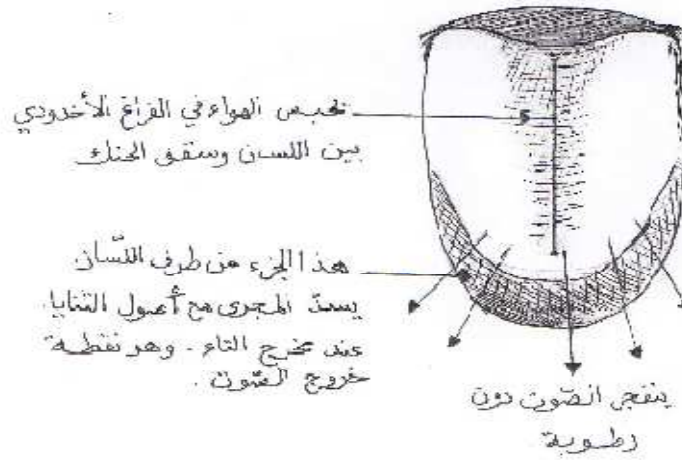 نحبس الهواء في الفراغ الأخدودي
بين اللسان وسقف الحنك
هذا الجزء من طرف اللّسان
يسدّ المجرى مع أصول الثنايا
عند مخرج التاء . وهو نقطة
خروج الصّوت .
ينفجر الصّوت دون
رطوبة